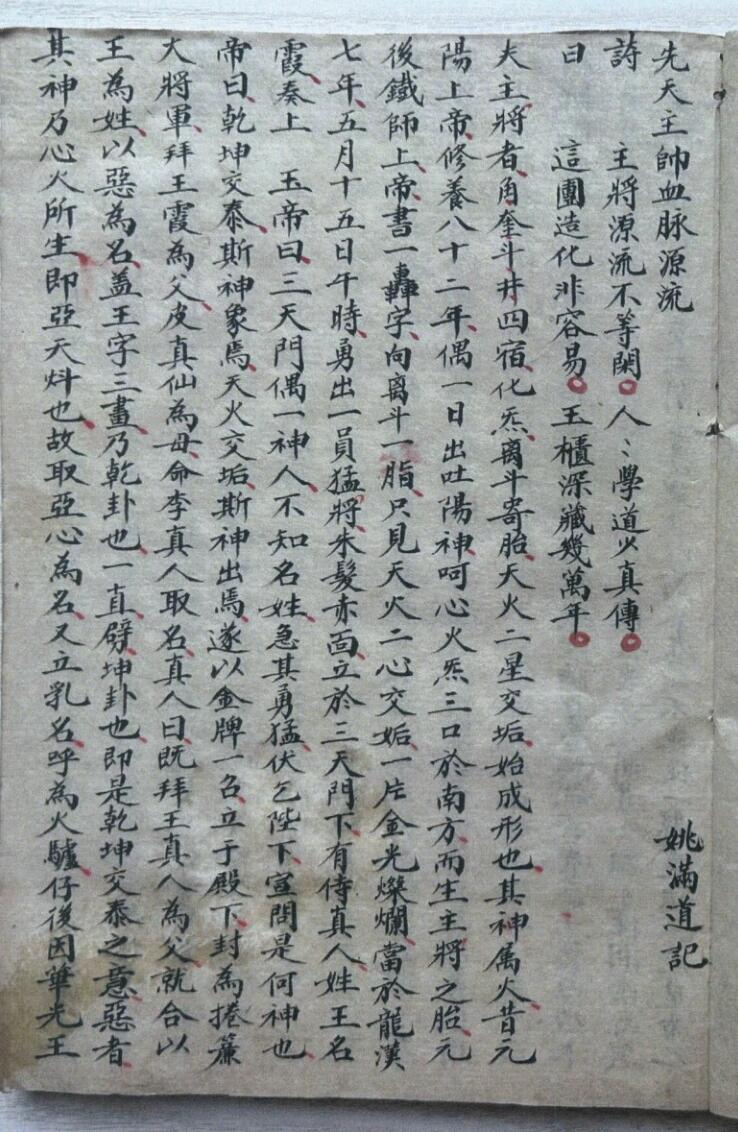 先天主帥血脉源流 姚滿道記
詩 主將源流不等閑 人〻學道少真傳
曰 這團造化非容易 玉櫃深藏幾萬年
夫主將者角奎斗井四宿化炁离斗寄胎天火二星交垢始成形也其神属火昔元
陽上帝修養八十二年偶一日出吐陽神呵心火炁三口於南方而生主將之胎元
後鐵師上帝書一轟字向离斗一脂只見天火二心交姤一片金光燦爛當於龍漢
七年五月十五日午時勇出一員猛將朱髮赤面立於三天門下有侍真人姓王名
霞奏上 玉帝曰三天門偶一神人不知名姓急其勇猛伏乞陛下宣問是何神也
帝曰乾坤交泰斯神象焉天火交垢斯神出焉遂以金牌一召立于殿下封為捲簾
大將軍拜王霞為父皮真仙為母命李真人取名真人曰既拜王真人為父就合以
王為姓以惡為名盖王字三畫乃乾卦也一直劈坤卦也即是乾坤交泰之意惡者
其神乃心火所生即亞天炓也故取亞心為名又立乳名呼為火驢仔後因華光王